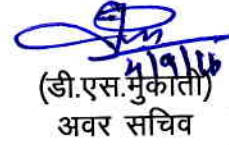 4/9/16
(डी.एस.मुकाती)
अवर सचिव